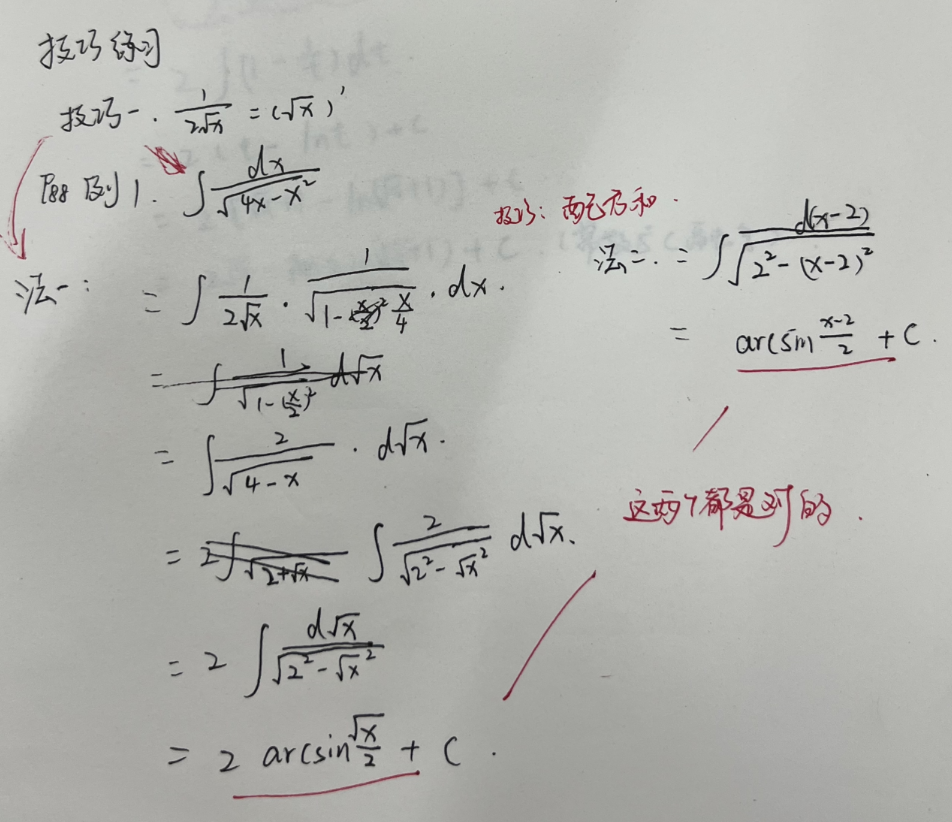 技巧练习
技巧一. 1/(2√x) = (√x)'
P88 例1. ∫ dx/√(4x-x²)
技巧: 配方和.
法一:
= ∫ 1/(2√x) · 1/√(1-x/4) · dx.
= ∫ 1/√(1-(x/2)²) d√x
= ∫ 2/√(4-x) · d√x.
= 2∫ 1/√(2+√x) ∫ 2/√(2²-√x²) d√x.
= 2 ∫ d√x/√(2²-√x²)
= 2 arcsin √x/2 + C.
法二. = ∫ d(x-2)/√(2²-(x-2)²)
= arcsin (x-2)/2 + C.
这两个都是对的.